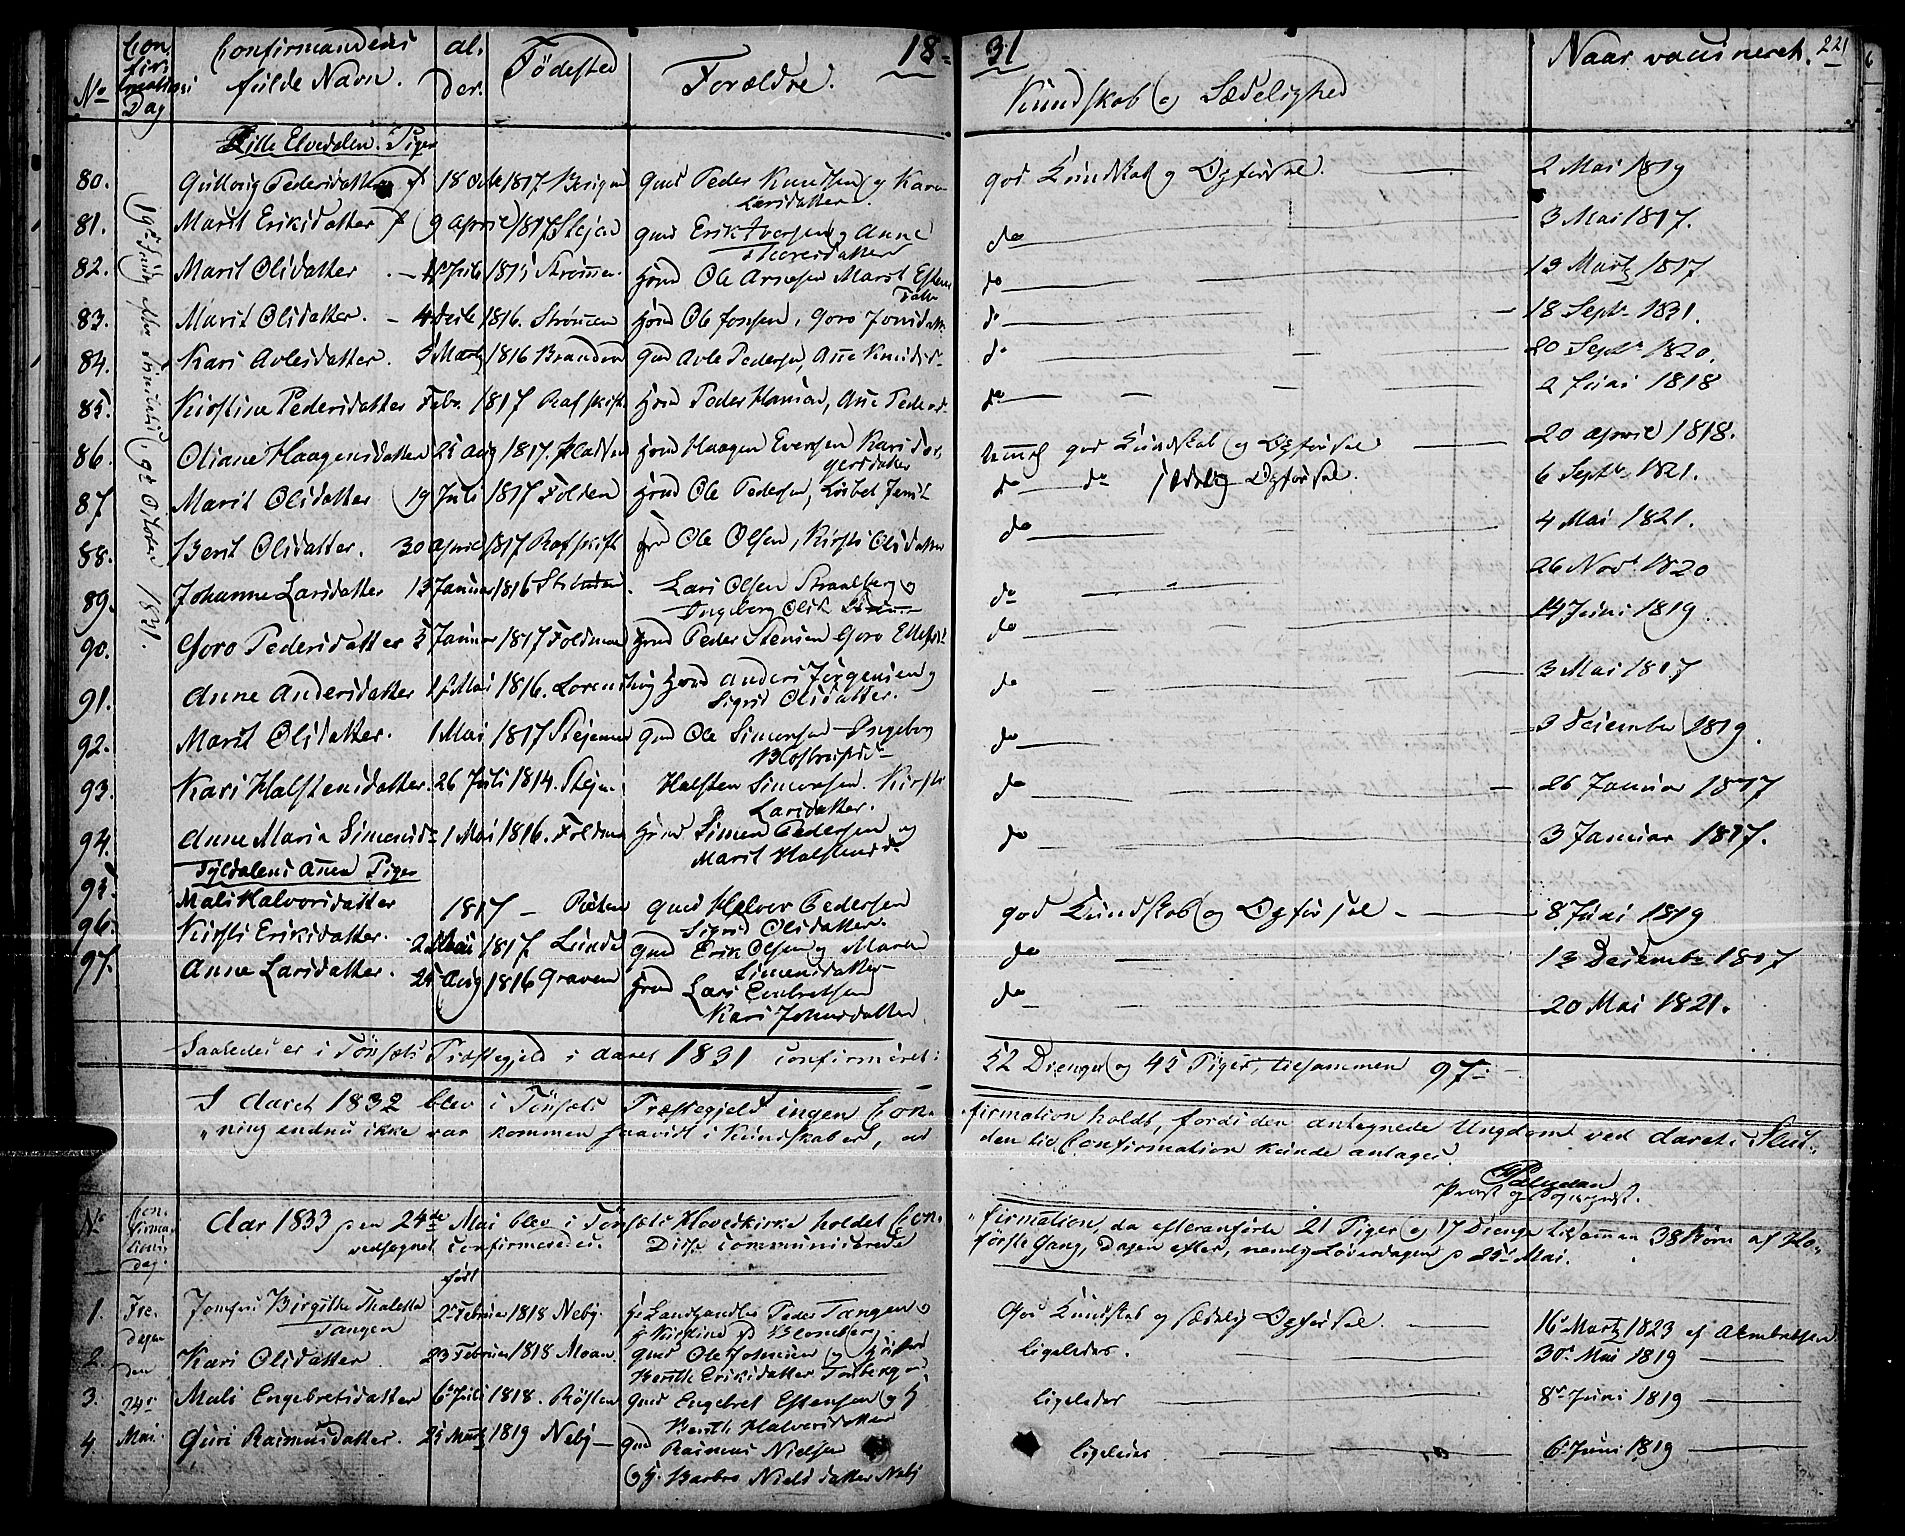 1831
221
No Confirmations Dag Confirmandens fulde Navn. Alder. Fødested Forældre. Kundskab og Sædelighed Naar vaccineret.
Lille Elvedalen. Piger
19de Søndag efter Trinitatis 9de October 1831.
80. Gullaug Pedersdatter 18 Octb 1817 Gmd Peder Knudsen og Karn Larsdatter. god Kundskab og Opførsel. 2 Mai 1819
81. Marit Eriksdatter 9 April 1817 Stejen Gmd Erik Iversen og Anne Thoresdatter do 3 Mai 1817.
82. Marit Olsdatter Juli 1815 Strømmen Hmd Ole Arnesen Marit Estensdatr do 13 Martz 1817
83. Marit Olsdatter. 4 Decb 1816. Strømmen Hmd Ole Jonsen, Goro Jonsdatr do 18 Septr 1831.
84. Kari Avlesdatter. 5 Martz 1816 Branden Gmd Avle Pedersen, Ane Knudsd. do 20 Septr 1820.
85. Kirstine Pedersdatter Febr. 1817 Rafskift Hmd Peder Hansen, Ane Pedersd. do 2 Juni 1818
86. Oliane Haagensdatter 21 Aug 1817. Pladsen Hmd Haagen Evensen Kari Torgersdatter temmel god Kundskab og Opførsel 20 April 1818.
87. Marit Olsdatter 19 Juli 1817 Folden Hmd Ole Pedersen, Lisbet Jensd. do do sædelig Opførsel. 6 Septr 1821.
88. Berit Olsdatter. 30 April 1817 Rafskift Hmd Ole Olsen, Kirsti Olsdatter do 4 Mai 1821.
89. Johanne Larsdatter 13 Januar 1816 Lars Olsen Straalberg og Ingeborg Olsd. do 26 Novb 1820
90. Goro Pedersdatter 5 Januar 1817 Foldmoe Hmd Peder Stensen Goro Ellefsd. do 14 Juni 1819.
91. Anne Andersdatter 1 Mai 1816. Hmd Anders Jørgensen og Sigrid Olsdatter. do 3 Mai 1817
92. Marit Olsdatter. 1 Mai 1817 Stejemoe Gmd Ole Simensen Ingeborg do 3 December 1819.
93. Kari Halstensdatter. 26 Juli 1814. Stejen Halsten Simensen. Kirsti Larsdatter. do 26 Januar 1817
94. Anne Maria Simensd. 1 Mai 1816. Foldmoe Hmd Simen Pedersen og Marit Halstensd. do 3 Januar 1817.
Tyldalens Annex Piger
95. Mali Halvorsdatter 1817 Gmd Halvor Pedersen Sigrid Olsdatter. god Kundskab og Opførsel 8 Juni 1819
96. Kirsti Eriksdatter. 2 Mai 1817. Lunde Gmd Erik Olsen og Maren Simensdatter do 13 December 1817
97. Anne Larsdatter. 25 Aug 1816 Graven Hmd Lars Embretsen Kari Johnsdatter. do 20 Mai 1821.
Saaledes er i Tønsæts Præstegjeld i Aaret 1831 confirmeret: 52 Drenge og 45 Piger, tilsammen 97.
I Aaret 1832 blev i Tønsæts Præstegjeld ingen Confirmation holdt, fordi den antegnede Ungdom ved Aarets Slutning endnu ikke var kommen saavidt i Kundskaber, at den til Confirmation kunde antages.
Provst og Sogneprest.
No Confirmations dag. Aar 1833 den 24de Mai blev i Tønsæts Hovedkirke holdt Confirmation, da efteranførte 21 Piger og 17 Drenge tilsammen 38 Børn af Hovedsognet confirmeredes. Disse communicerede første Gang, Dagen efter, nemlig Løverdagen d 25de Mai.
født
Fredagen den 24de Mai.
1. Jomfru Birgithe Thalette Tangen 2 Februar 1818 Neby. Hr Landhandler Peder Tangen og H Kirstine fd Blomberg God Kundskab og sædelig Opførsel. 16 Martz 1823 af Alembretsen
2. Kari Olsdatter 23 Februar 1818 Moan. Gmd Ole Johnsen og Hustrue Berith Eriksdatter ligeledes. 30 Mai 1819
3. Mali Engebretsdatter 6 Juli 1818. Røsten Gmd Engebret Estensen og H Berith Halvorsdatter ligeledes 8 Juni 1819
4. Guri Rasmusdatter. 25 Martz 1819 Neby Gmd Rasmus Nielsen og H. Barbro Nielsdatter Neby ligeledes. 6 Juni 1819